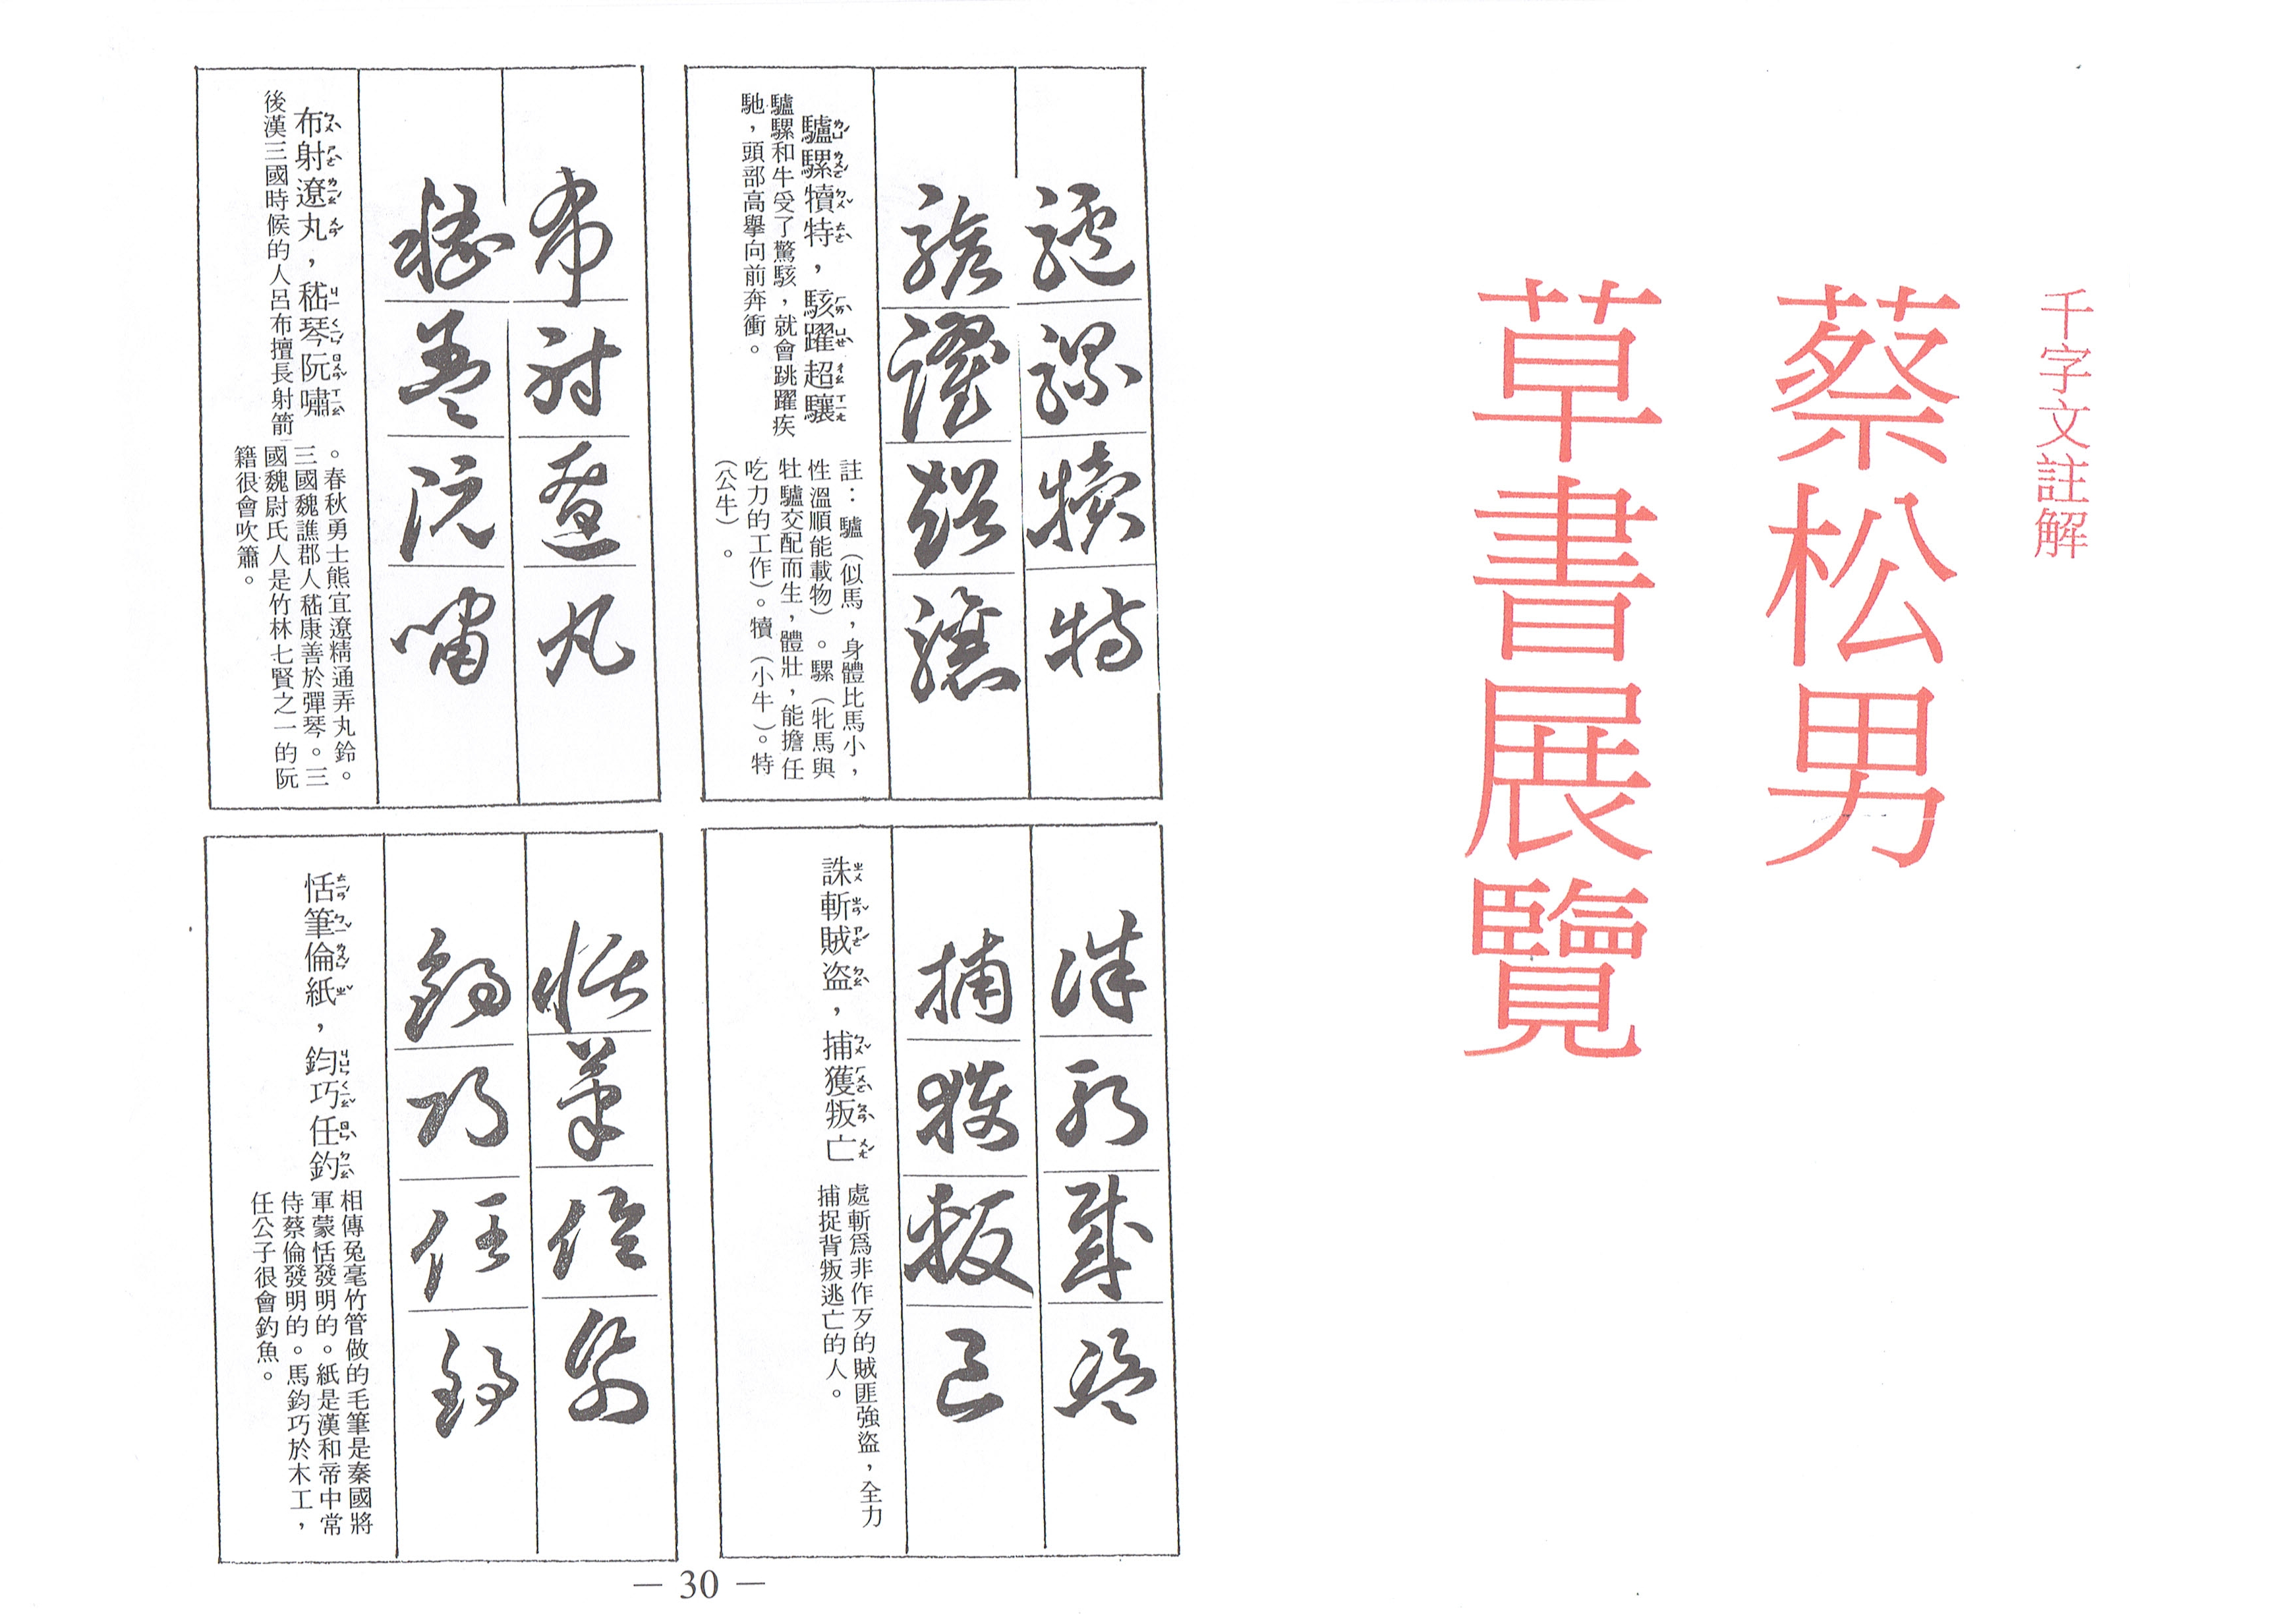 千字文註解
蔡松男
草書展覽
驢騾犢特
駭躍超驤
驢騾犢特，駭躍超驤
驢騾和牛受了驚駭，就會跳躍疾
馳，頭部高舉向前奔衝。
註：驢（似馬，身體比馬小，
性溫順能載物）。騾（牝馬與
牡驢交配而生，體壯，能擔任
吃力的工作）。犢（小牛）。特
（公牛）。
誅斬賊盜
捕獲叛亡
誅斬賊盜，捕獲叛亡
處斬爲非作歹的賊匪強盜，全力
捕捉背叛逃亡的人。
布射遼丸
嵇琴阮嘯
布射遼丸，嵇琴阮嘯
後漢三國時候的人呂布擅長射箭
。春秋勇士熊宜遼精通弄丸鈴。
三國魏譙郡人嵇康善於彈琴。三
國魏尉氏人是竹林七賢之一的阮
籍很會吹簫。
恬筆倫紙
鈞巧任釣
恬筆倫紙，鈞巧任釣
相傳兔毫竹管做的毛筆是秦國將
軍蒙恬發明的。紙是漢和帝中常
侍蔡倫發明的。馬鈞巧於木工，
任公子很會釣魚。
— 30 —